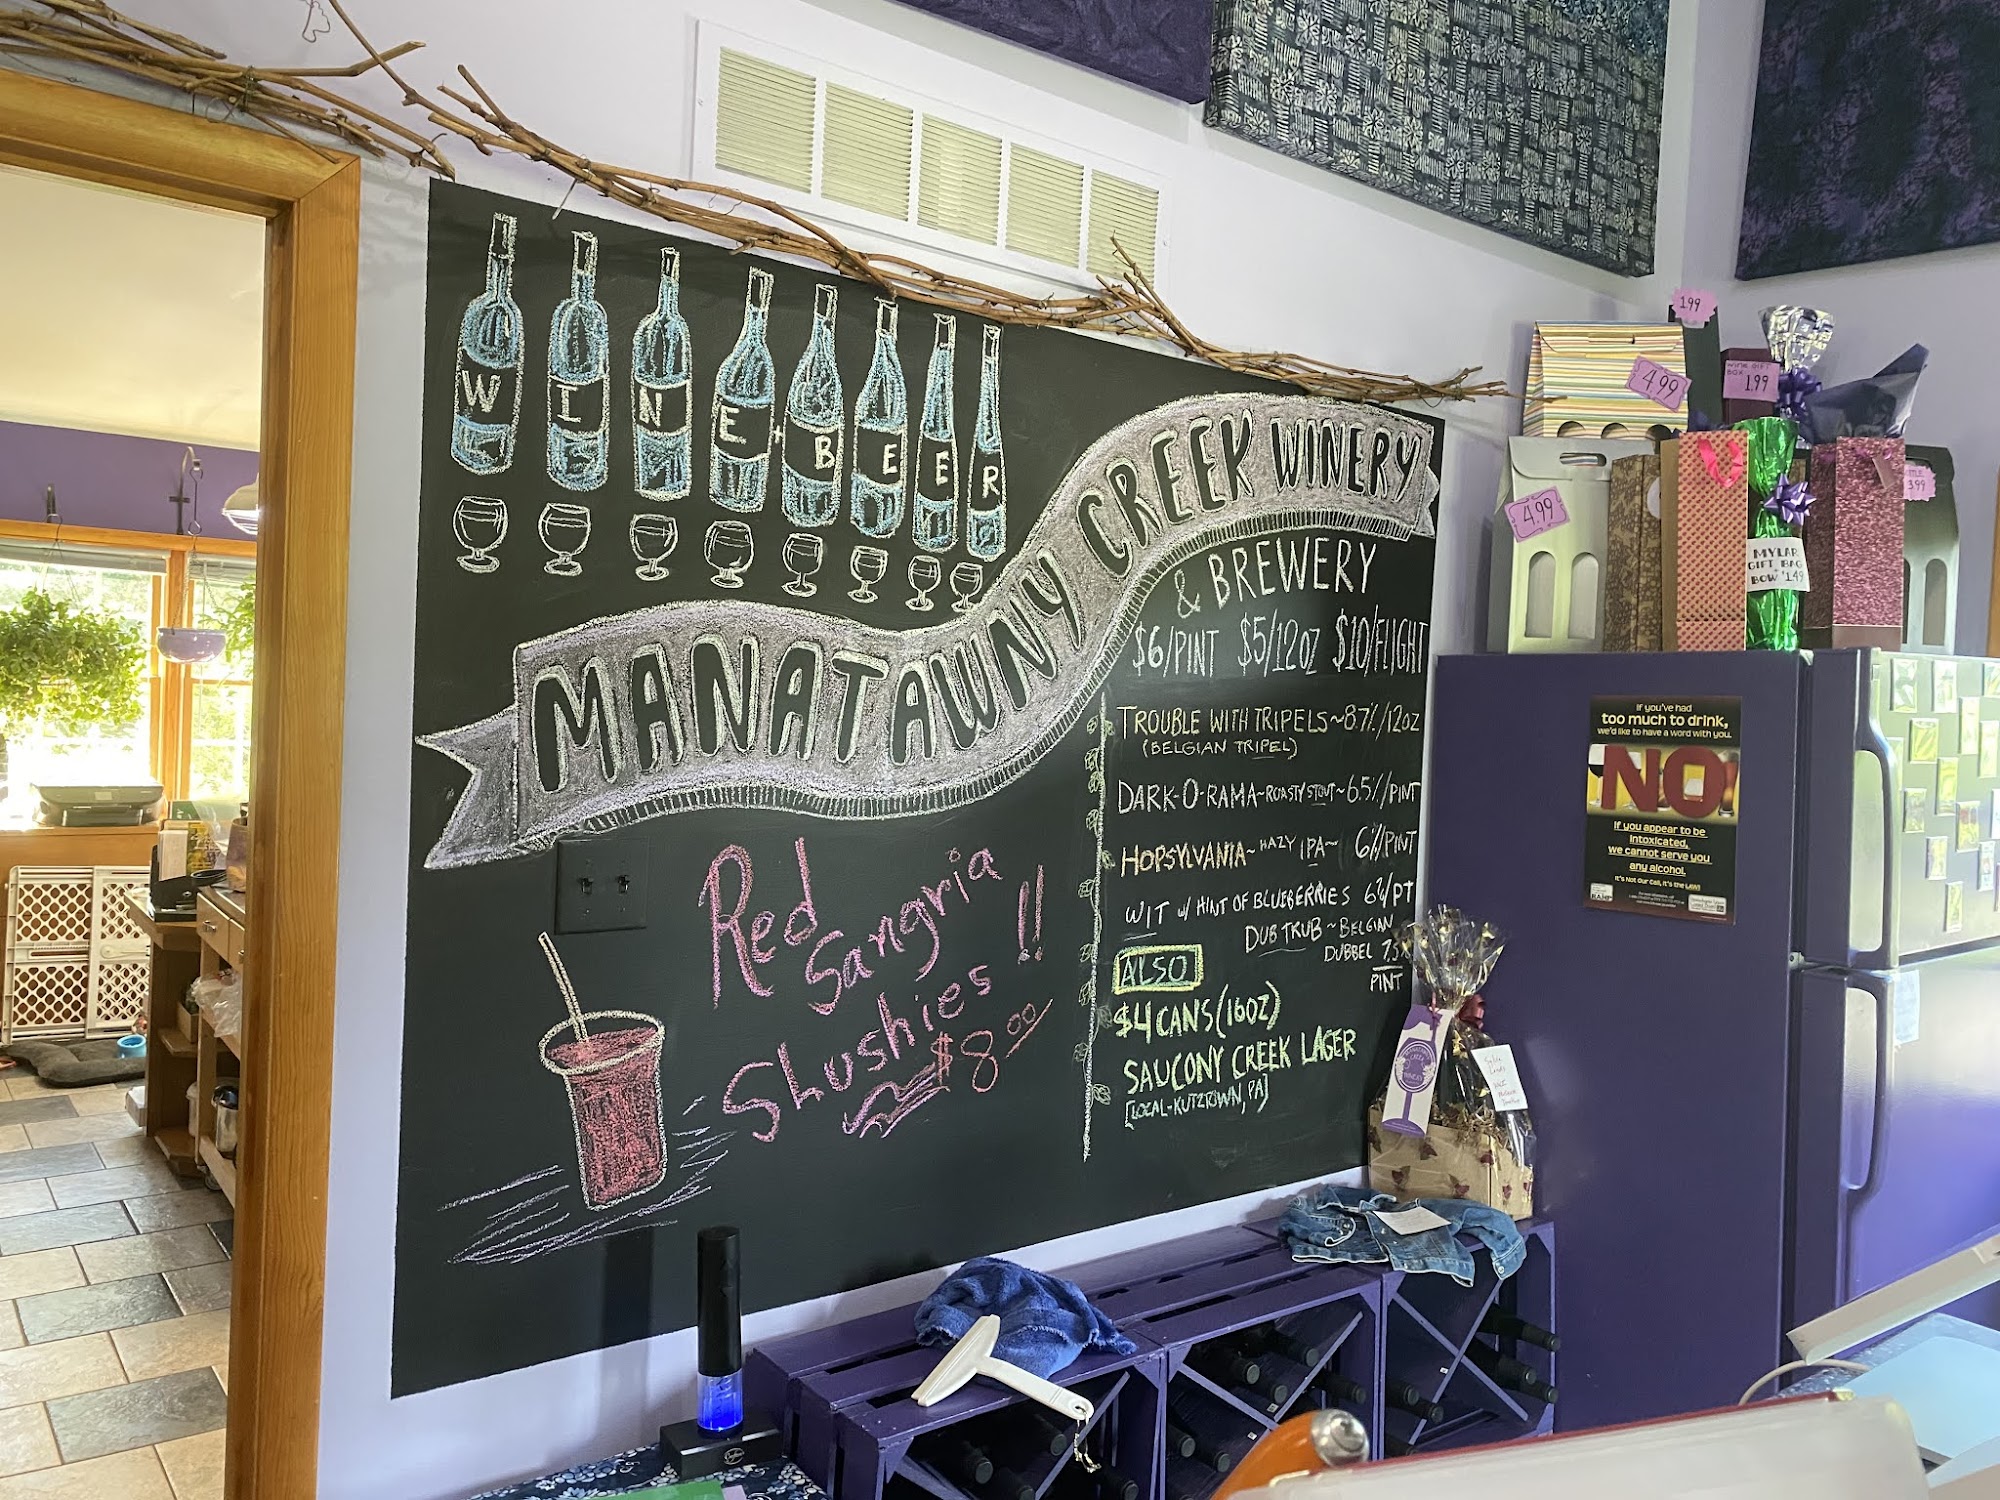 WINE + BEER
MANATAWNY CREEK WINERY
& BREWERY
$6/PINT $5/12OZ $10/FLIGHT
TROUBLE WITH TRIPELS~8.7%/12OZ
(BELGIAN TRIPEL)
DARK-O-RAMA~ROASTY STOUT~6.5%/PINT
HOPSYLVANIA~HAZY IPA~ 6%/PINT
WIT w/ HINT OF BLUEBERRIES 6%/PT
DUB TRUB~BELGIAN
DUBBEL 7.5%
PINT
ALSO
$4 CANS (16OZ)
SAUCONY CREEK LAGER
[LOCAL-KUTZTOWN, PA]
Red
Sangria
Slushies !!
$8.00
1.99
4.99
WINE GIFT
BOX
1.99
4.99
3.99
MYLAR
GIFT BAG
BOW $1.49
If you've had
too much to drink,
we'd like to have a word with you.
NO
If you appear to be
intoxicated,
we cannot serve you
any alcohol.
It's Not Our Call, it's the LAW!
RAMP